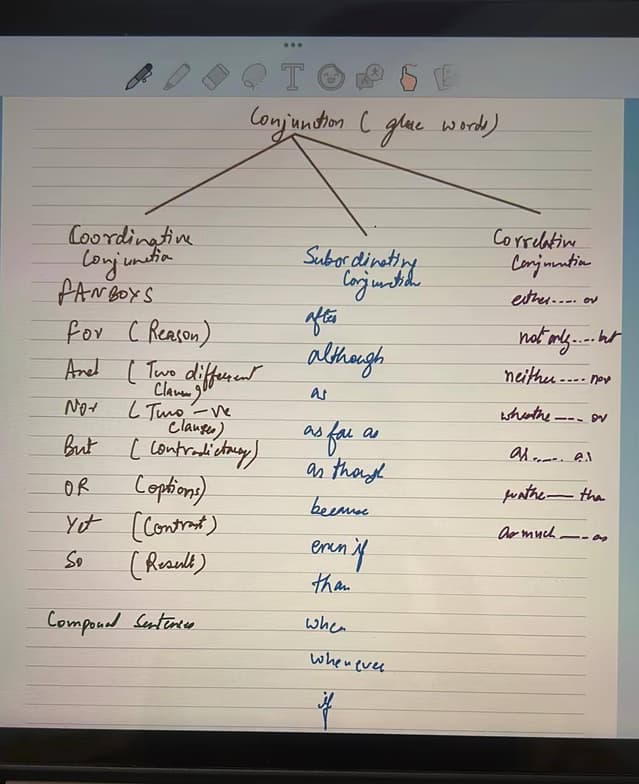 Conjunction ( glue words)
Coordinative
Conjunction
FANBOYS
For ( Reason)
And ( Two different
Clauses)
Nor ( Two -ve
Clauses)
But ( Contradictory)
OR (options)
Yet (Contrast)
So (Result)
Compound Sentences
Subordinating
Conjunction
after
although
as
as far as
as though
because
even if
than
when
whenever
if
Correlative
Conjunction
either.... or
not only.... but
neither .... nor
whethe --- or
as .... as
rathe --- tha
as much --- as